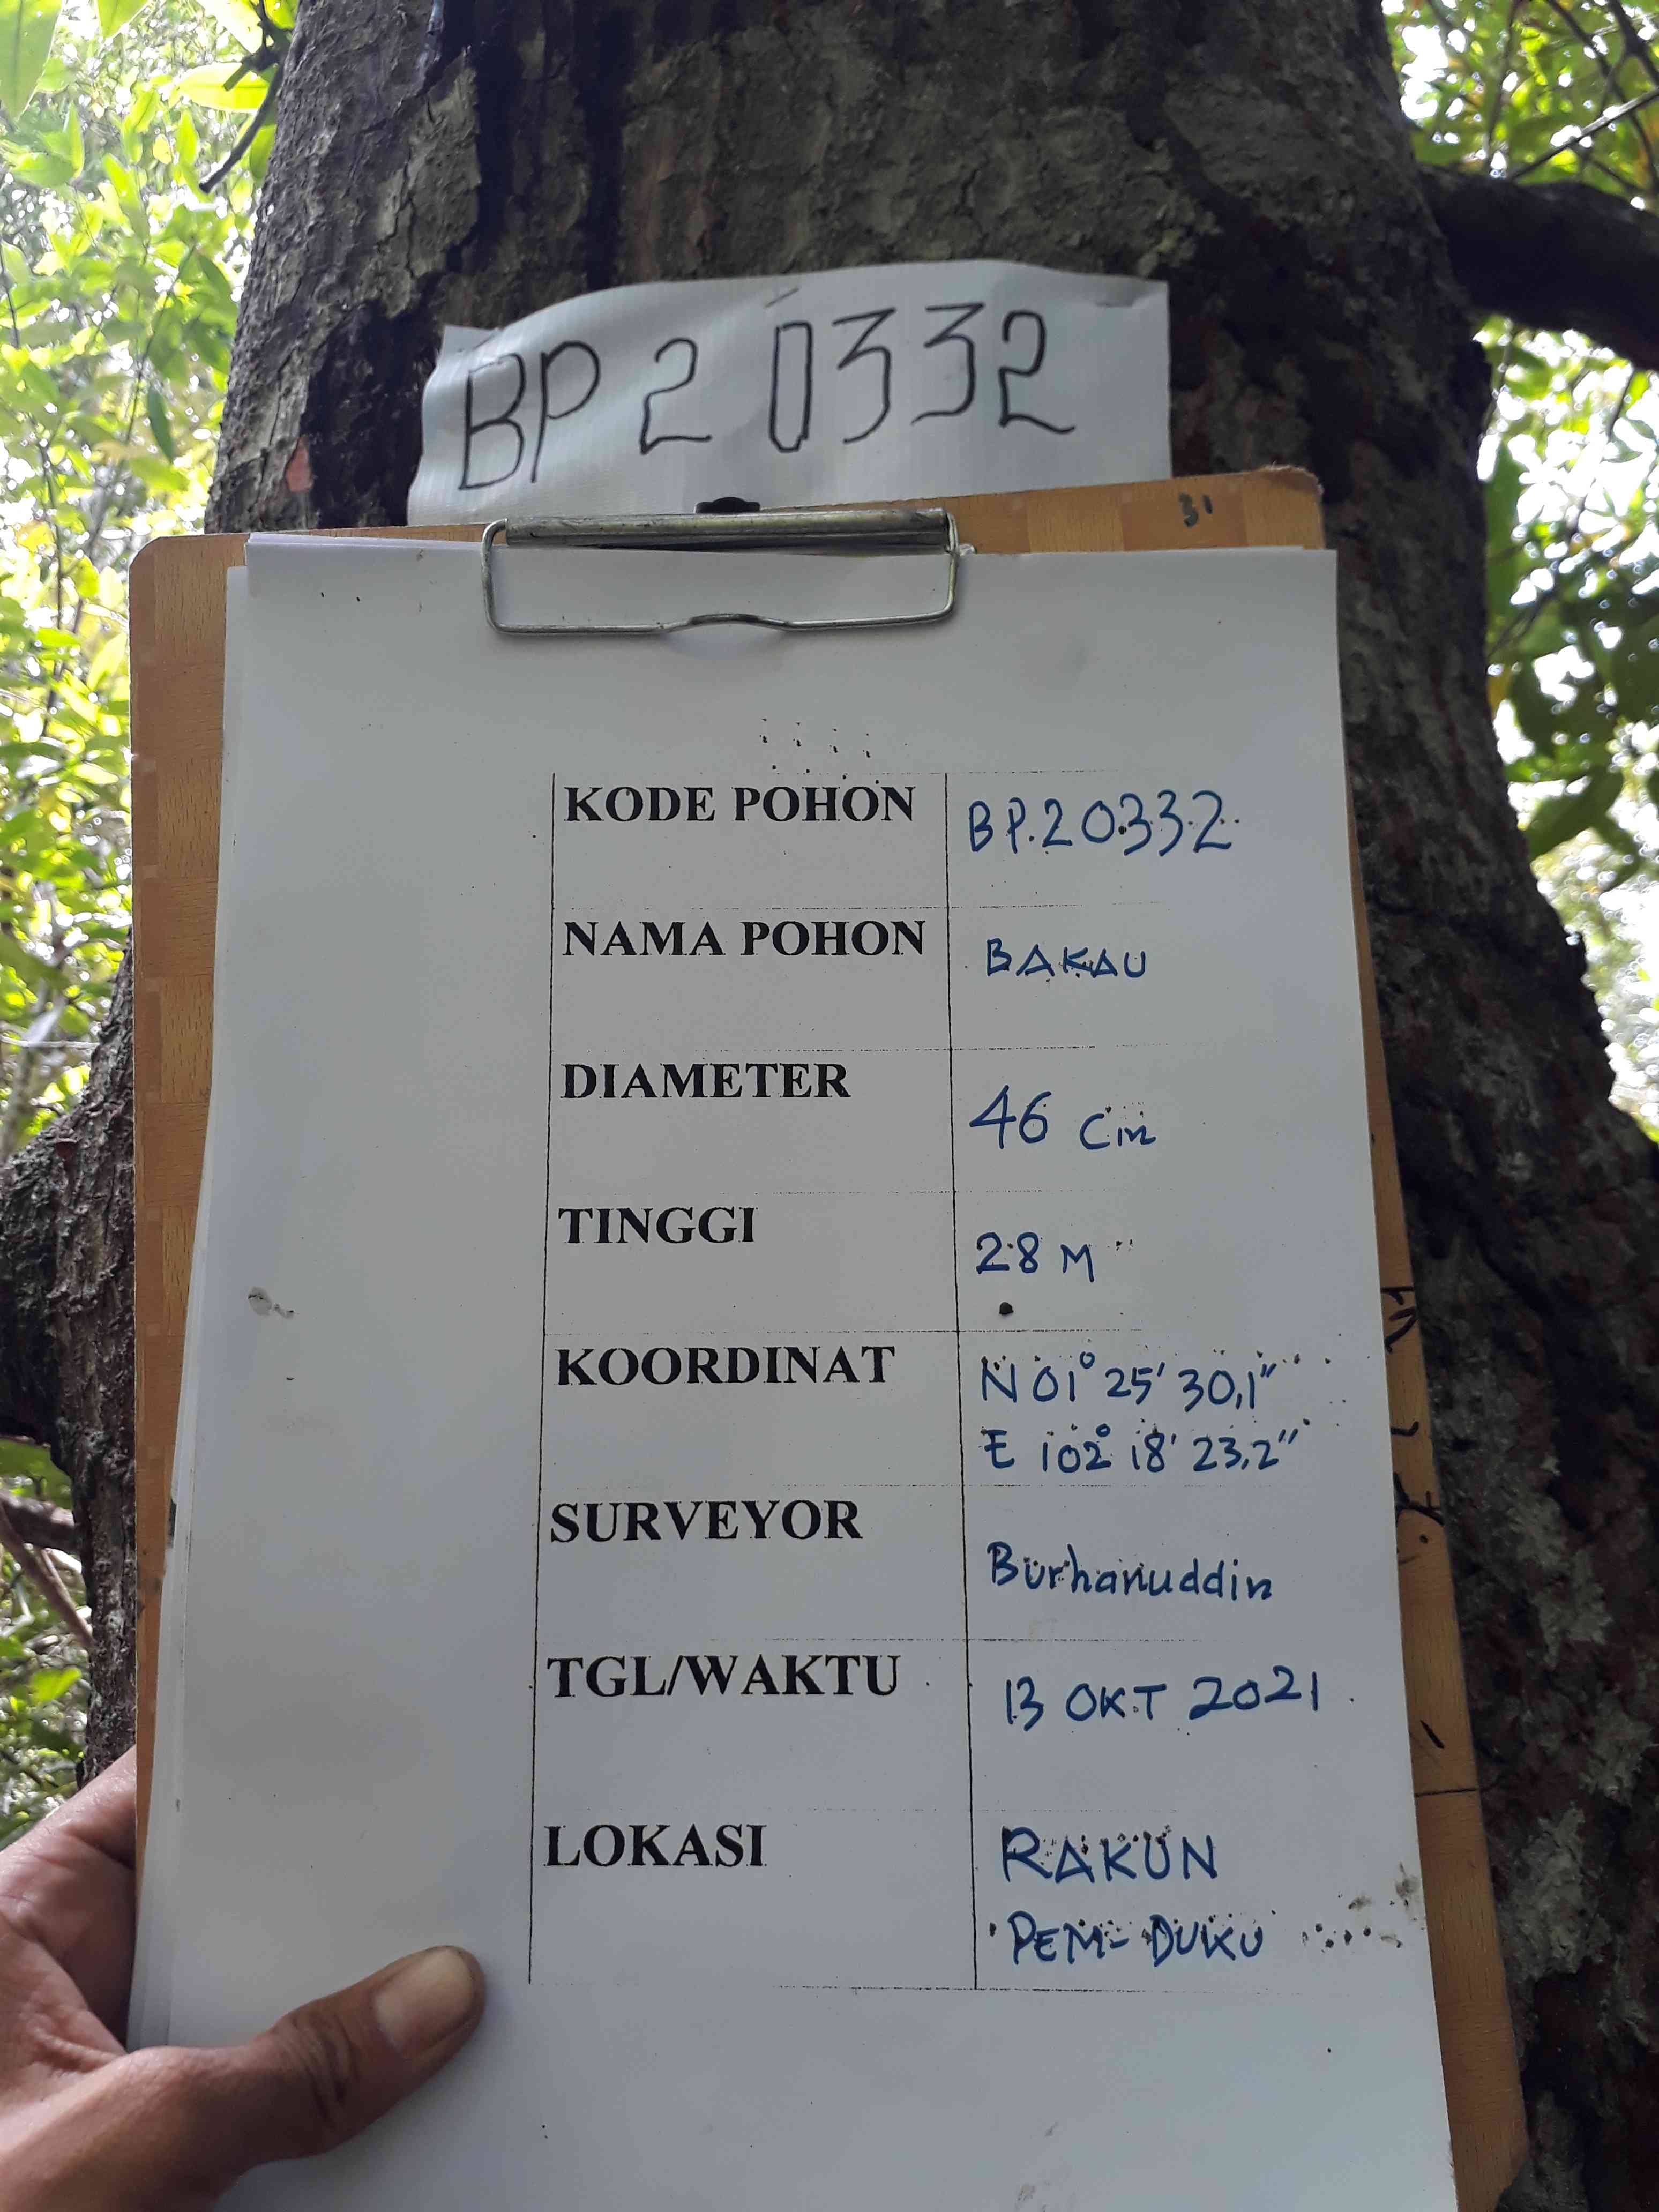 BP 2 0332
31
KODE POHON BP.20332
NAMA POHON BAKAU
DIAMETER 46 Cm
TINGGI 28 M
KOORDINAT N 01° 25' 30,1"
E 102° 18' 23,2"
SURVEYOR Burhanuddin
TGL/WAKTU 13 OKT 2021
LOKASI RAKUN
PEM-DUKU